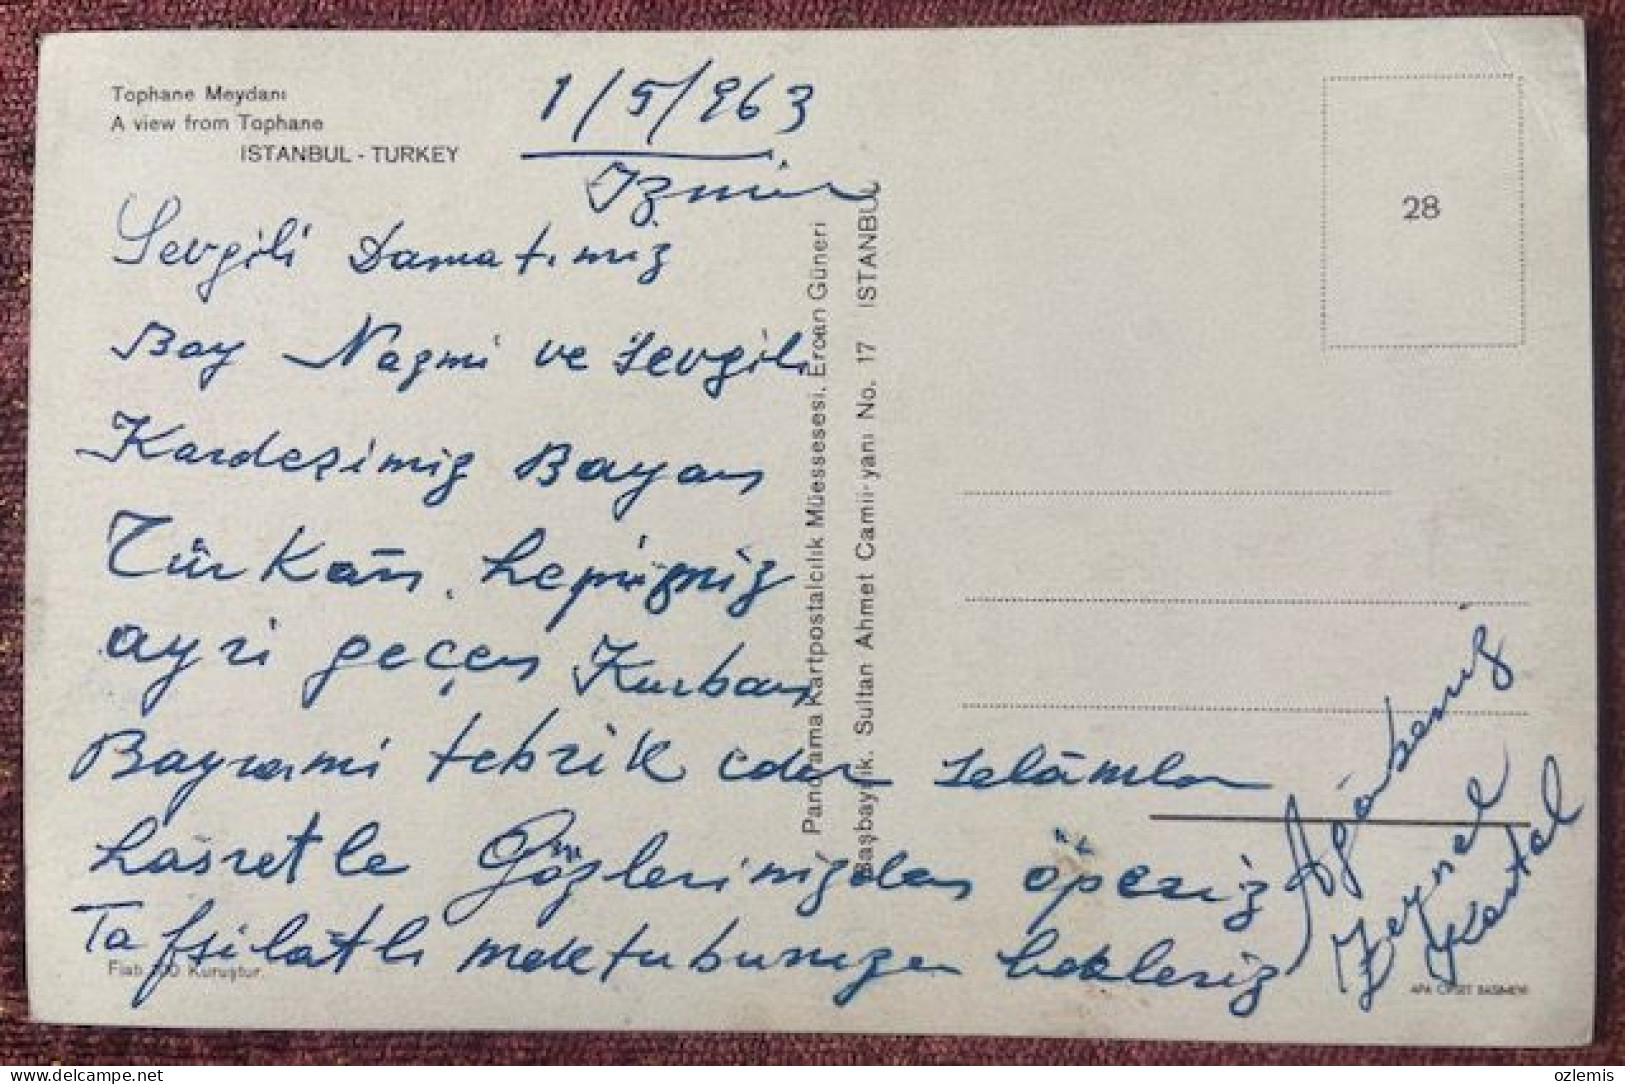 Tophane Meydanı
A view from Tophane
ISTANBUL - TURKEY
1/5/963
İzmir
Sevgili Damatımız
Bay Nazmi ve Sevgili
Kardeşimiz Bayan
Türkân. hepinizniz
ayri geçen Kurban
Bayramı tebrik eder selâmlar
hasretle Gözlerinizden öperiz
Tafsilâtlı mektubunuzu bekleriz
Ağabeniz
Zeynel
Kartal
28
Panorama Kartpostalcılık Müessesesi, Ercan Güneri
Başbayilik. Sultan Ahmet Camii yanı No. 17 ISTANBUL
Fiatı 100 Kuruştur.
APA OFSET BASIMEVİ
ozlemis
delcampe.net